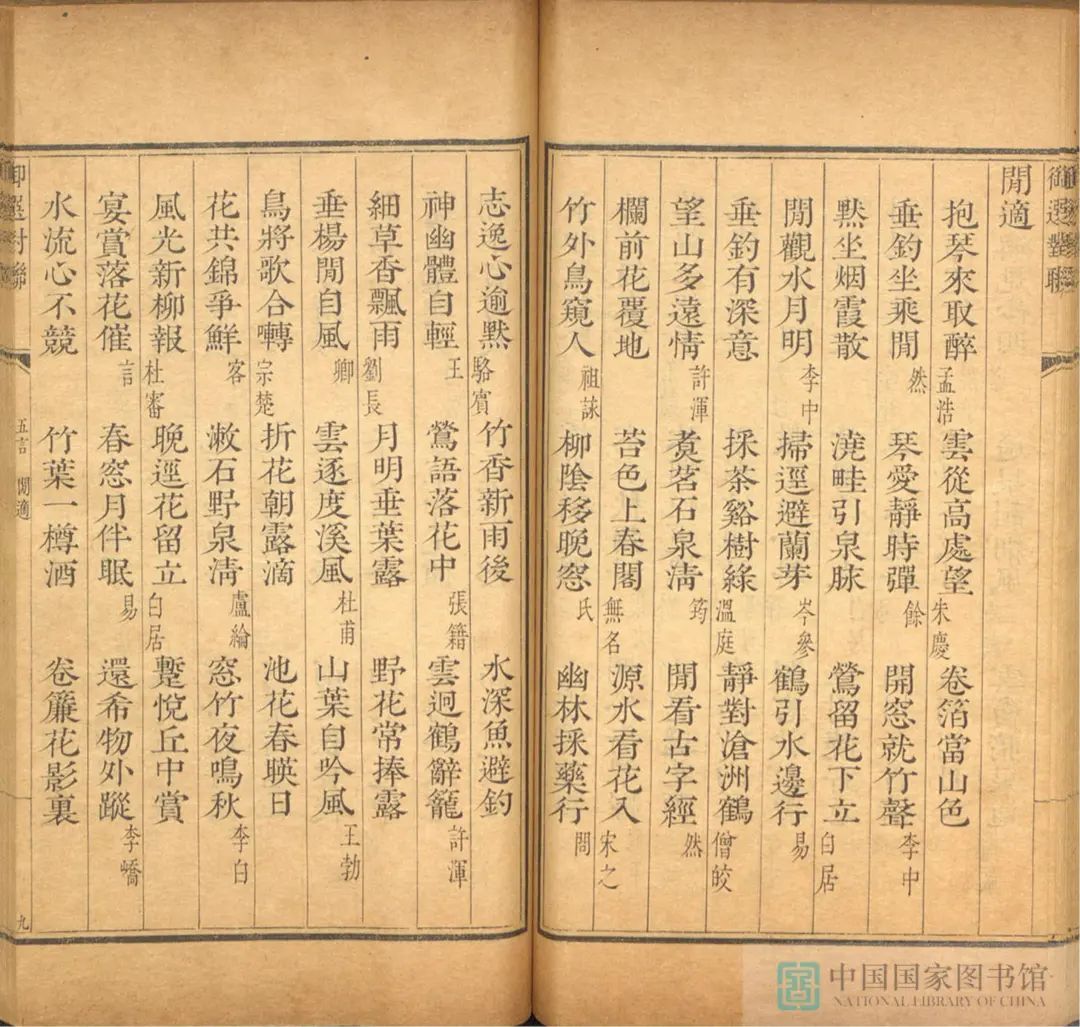 御選對聯
閒適
抱琴來取醉 孟浩 雲從高處望 朱慶 卷箔當山色
垂釣坐乘閒 然 琴愛靜時彈 餘 開窓就竹聲 李中
默坐烟霞散 澆畦引泉脉 鶯留花下立 白居
閒觀水月明 李中 掃逕避蘭芽 岑參 鶴引水邊行 易
垂釣有深意 採茶谿樹綠 溫庭 靜對滄洲鶴 僧皎
望山多遠情 許渾 煑茗石泉淸 筠 閒看古字經 然
欄前花覆地 苔色上春閣 無名 源水看花入 宋之
竹外鳥窺人 祖詠 柳陰移晚窓 氏 幽林採藥行 問
志逸心逾默 駱賓 竹香新雨後 水深魚避釣
神幽體自輕 王 鶯語落花中 張籍 雲迥鶴辭籠 許渾
細草香飄雨 劉長 月明垂葉露 野花常捧露
垂楊閒自風 卿 雲逐度溪風 杜甫 山葉自吟風 王勃
鳥將歌合囀 宗楚 折花朝露滴 池花春暎日
花共錦爭鮮 客 漱石野泉淸 盧綸 窓竹夜鳴秋 李白
風光新柳報 杜審 晚逕花留立 白居 蹔悅丘中賞
宴賞落花催 言 春窓月伴眠 易 還希物外蹤 李嶠
水流心不競 竹葉一樽酒 卷簾花影裏
御選對聯 五言 閒適 九
中国国家图书馆
NATIONAL LIBRARY OF CHINA